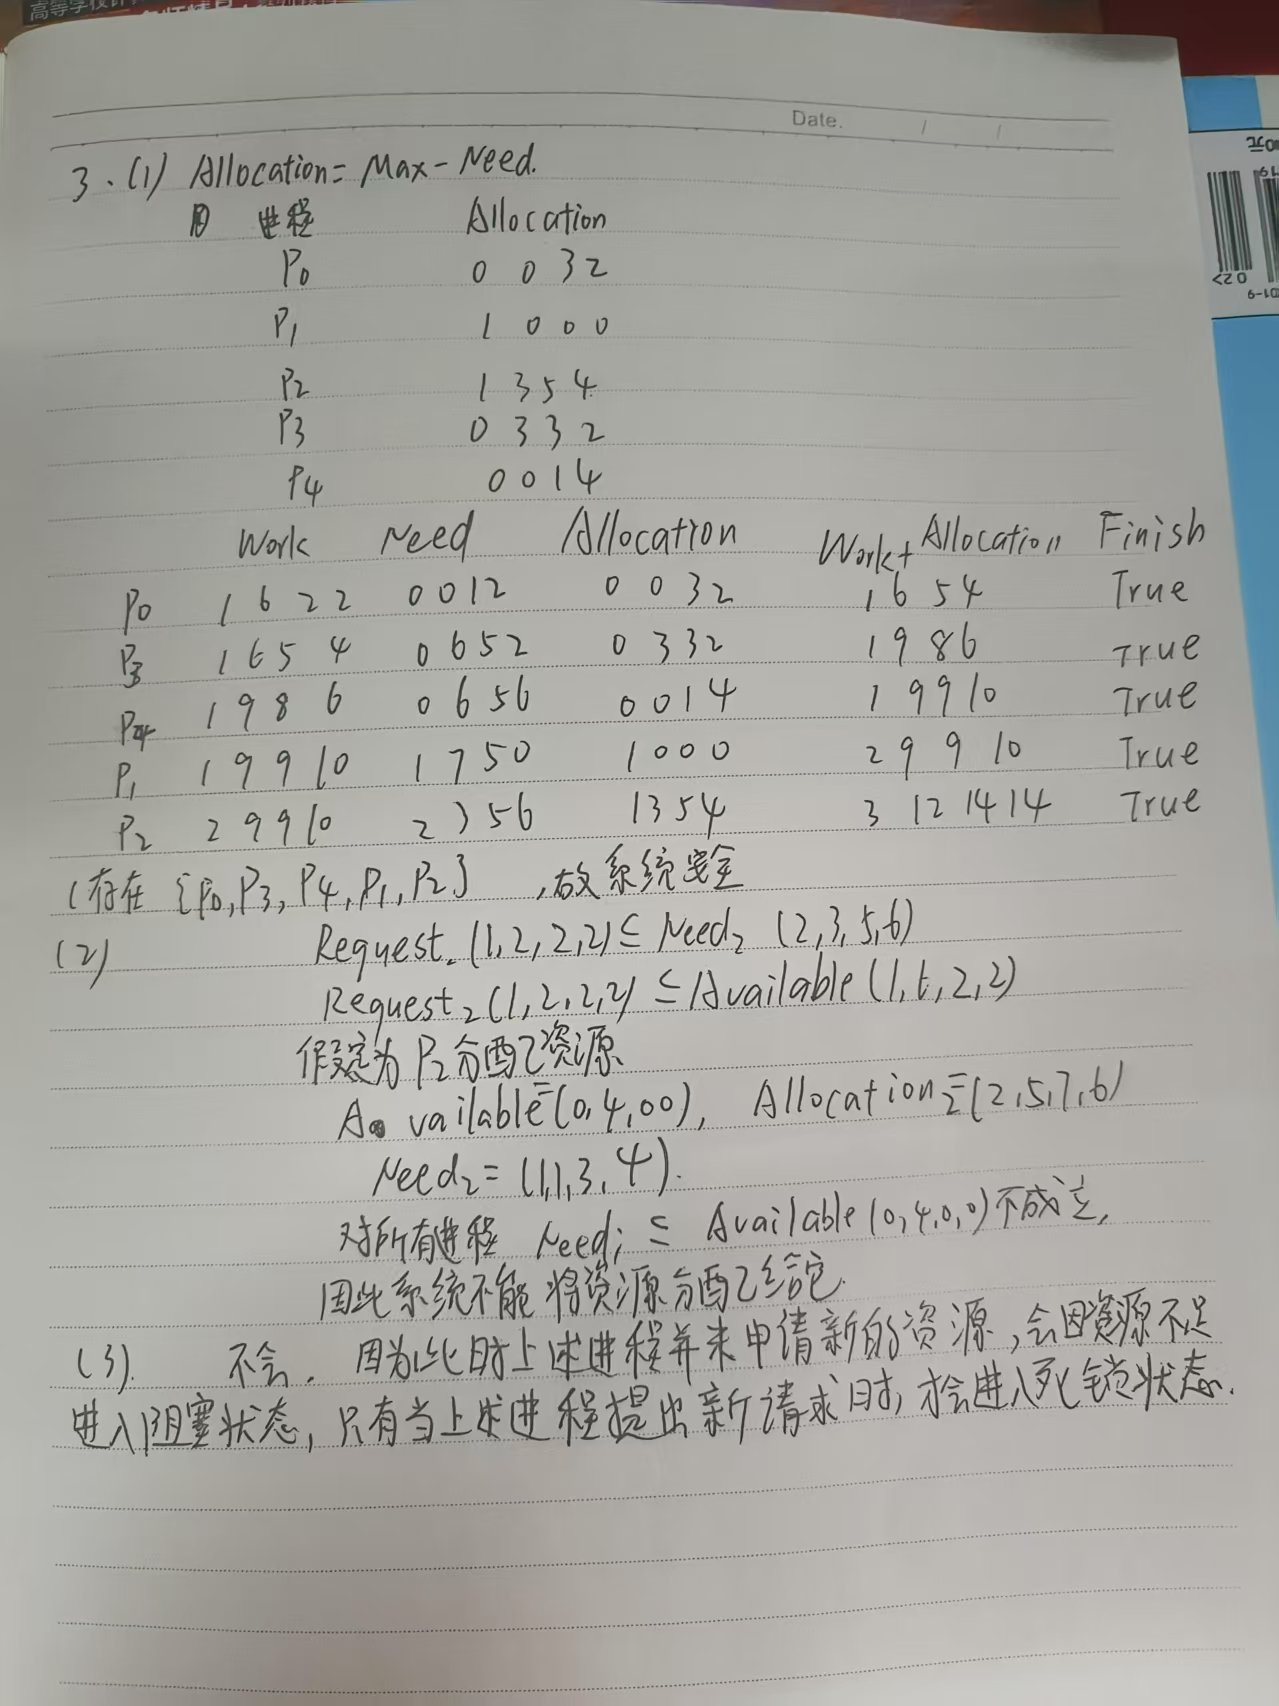 高等学校计
Date. / /
3.(1) Allocation = Max - Need.
进程 Allocation
P0 0 0 3 2
P1 1 0 0 0
P2 1 3 5 4
P3 0 3 3 2
P4 0 0 1 4
Work Need Allocation Work+Allocation Finish
P0 1 6 2 2 0 0 1 2 0 0 3 2 1 6 5 4 True
P3 1 6 5 4 0 6 5 2 0 3 3 2 1 9 8 6 True
P4 1 9 8 6 0 6 5 6 0 0 1 4 1 9 9 10 True
P1 1 9 9 10 1 7 5 0 1 0 0 0 2 9 9 10 True
P2 2 9 9 10 2 3 5 6 1 3 5 4 3 12 14 14 True
(存在 {P0, P3, P4, P1, P2} ,故系统安全
(2) Request2 (1,2,2,2) ≤ Need2 (2,3,5,6)
Request2 (1,2,2,2) ≤ Available (1,6,2,2)
假定为P2分配了资源
Available=(0,4,0 0), Allocation2=(2,5,7,6)
Need2=(1,1,3,4).
对所有进程 Needi ≤ Available (0,4,0,0)不成立,
因此系统不能将资源分配了给它.
(3). 不会. 因为此时上述进程并未申请新的资源,会因资源不足
进入阻塞状态,只有当上述进程提出新请求时,才会进入死锁状态.